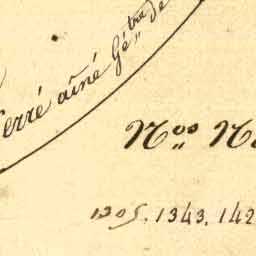 erré aîné Gé.tre de
N.os N
1305. 1343. 142